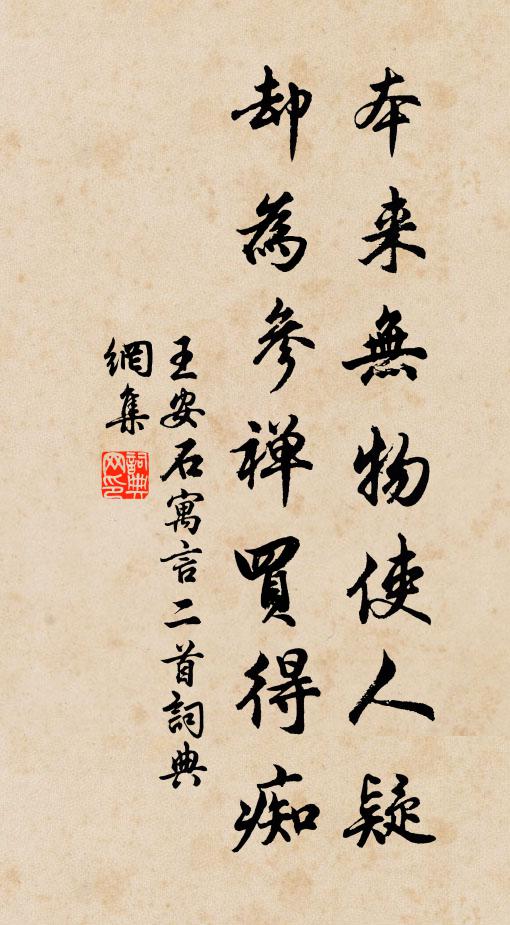 本来無物使人疑
却為參禅買得癡
王安石寓言二首詞典
網集
詞典網印